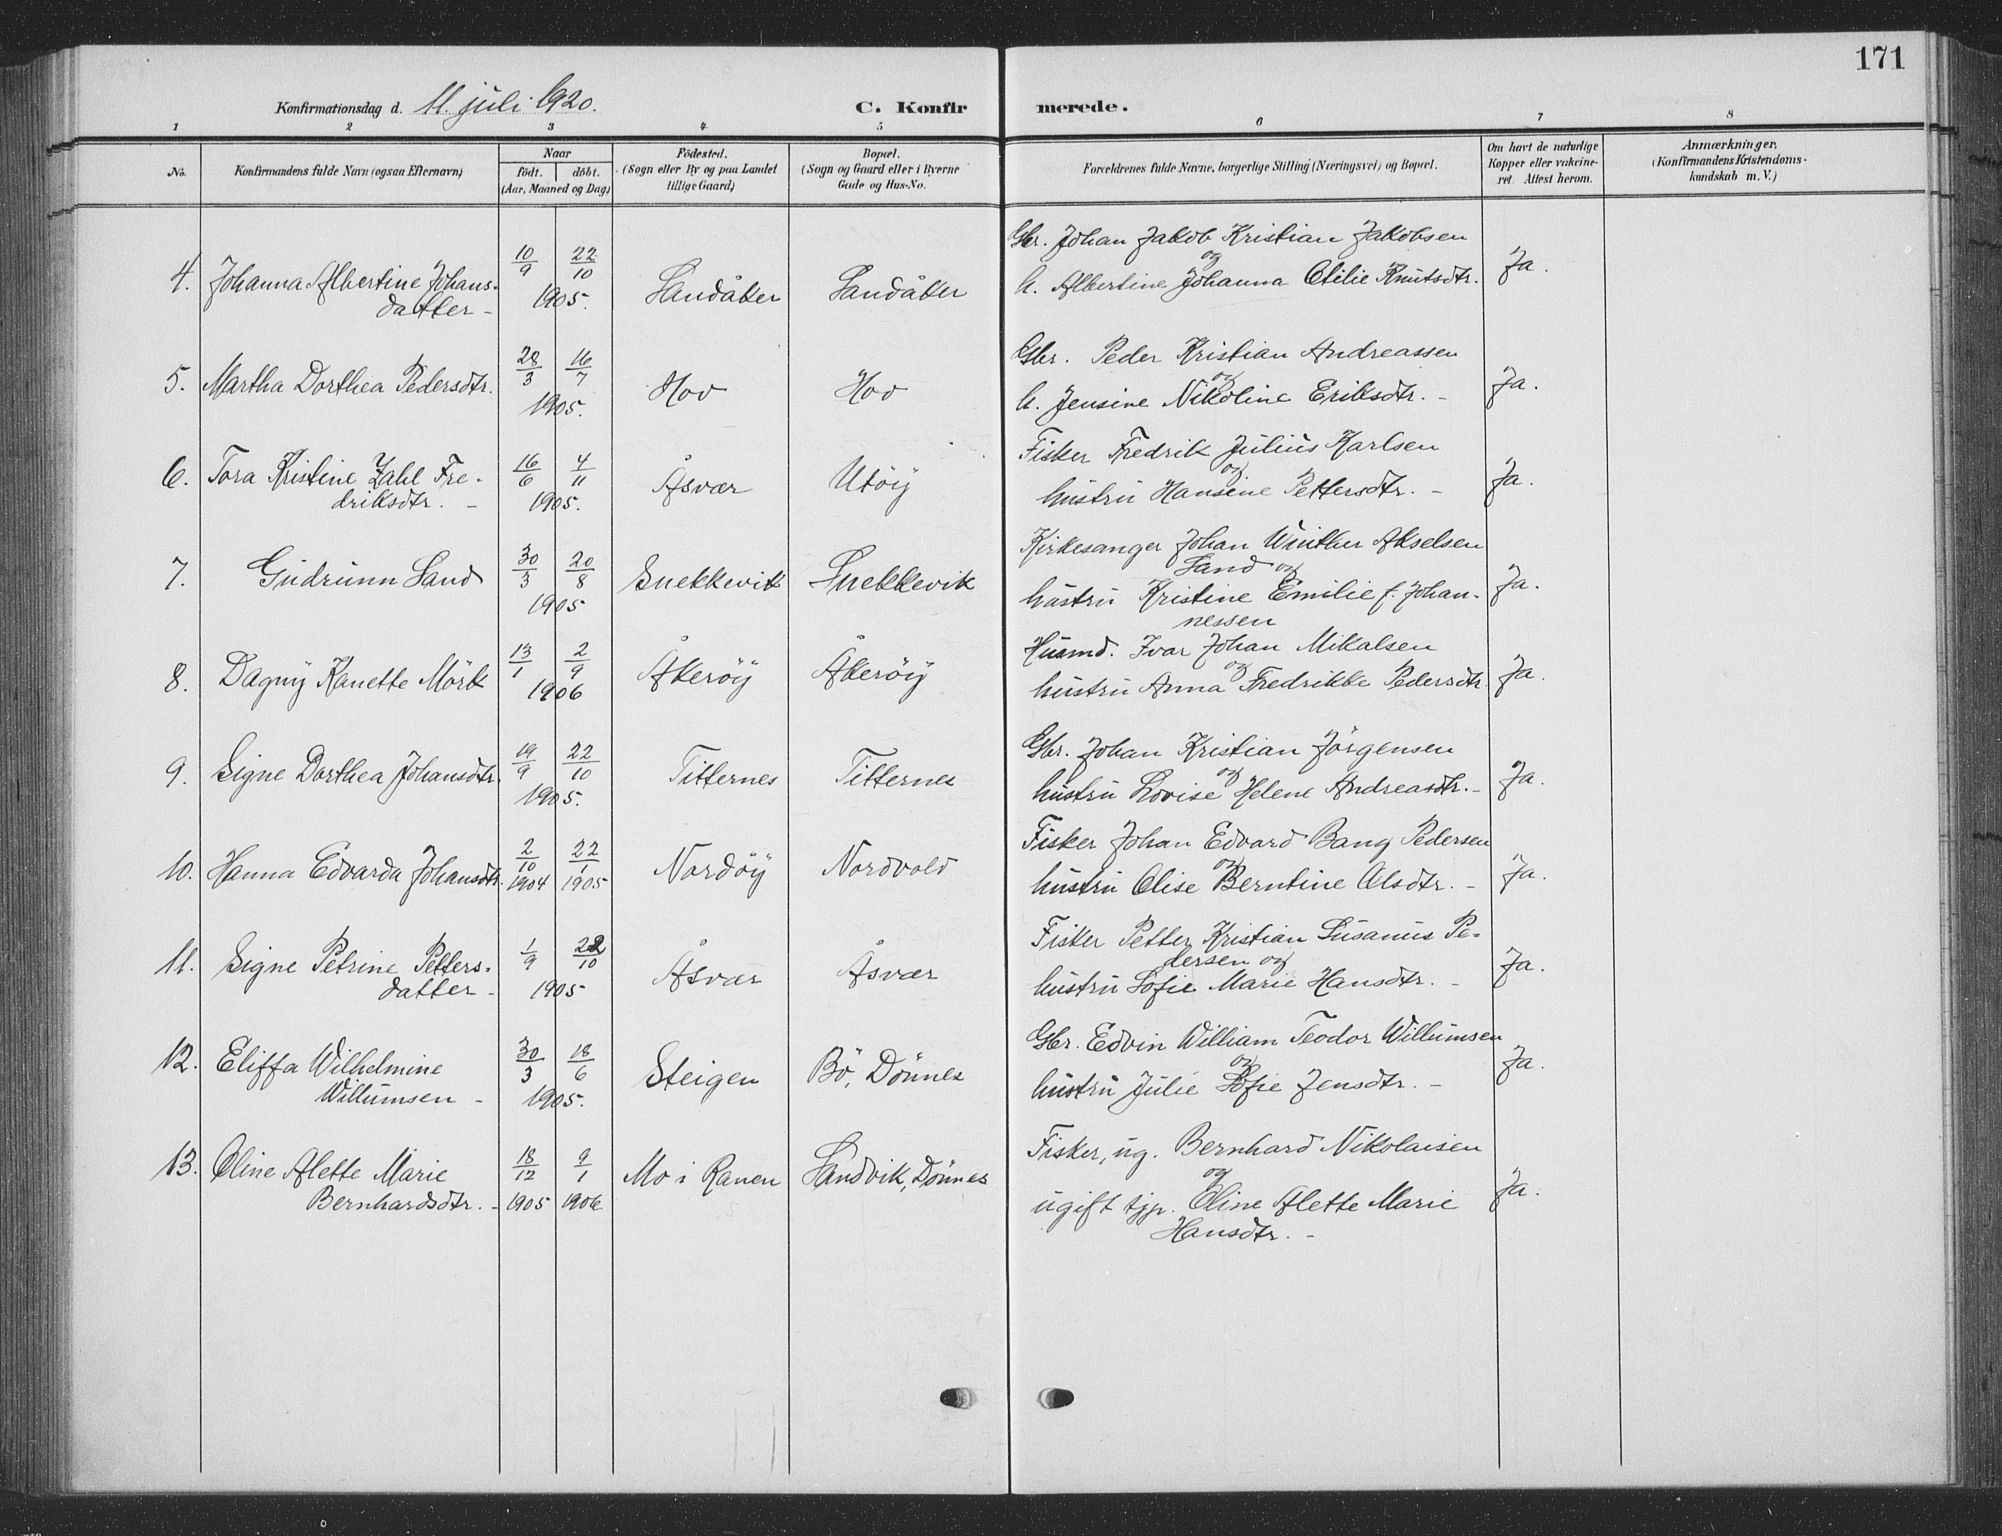 171
Konfirmationsdag d. 11. juli 1920.
C. Konfirmerede.
1 2 3 4 5 6 7 8
No.
Konfirmandens fulde Navn (ogsaa Efternavn)
Naar
født. døbt.
(Aar, Maaned og Dag)
Fødested.
(Sogn eller By og paa Landet
tillige Gaard)
Bopæl.
(Sogn og Gaard eller i Byerne
Gade og Hus-No.
Forældrenes fulde Navne, borgerlige Stilling (Næringsvei) og Bopæl.
Om havt de naturlige
Kopper eller vakcine-
ret. Attest herom.
Anmærkninger.
(Konfirmandens Kristendoms-
kundskab m. V.)
4. Johanna Albertine Johans-
datter -
10/9 22/10
1905.
Sandåker
Sandåker
Gbr. Johan Jakob Kristian Jakobsen
og
h. Albertine Johanna Otilie Knutsdtr.
Ja.
5. Martha Dorthea Pedersdtr.
28/3 16/7
1905.
Hov
Hov
Gbr. Peder Kristian Andreassen
og
h. Jensine Nikoline Eriksdtr. -
Ja.
6. Tora Kristine Zahl Fre-
driksdtr. -
16/6 4/11
1905.
Åsvær
Utöy
Fisker Fredrik Julius Karlsen
og
hustru Hansine Pettersdtr. -
Ja.
7. Gudrunn Sand
30/3 20/8
1905
Snekkevik
Snekkevik
Kirkesanger Johan Winther Akselsen
Sand og
hustru Kristine Emilie f. Johan-
nessen
Ja.
8. Dagny Kanette Mörk
13/1 2/9
1906
Åkeröy
Åkeröy
Husmd. Ivar Johan Mikalsen
og
hustru Anna Fredrikke Pedersdtr.
Ja.
9. Signe Dorthea Johansdtr.
19/9 22/10
1905.
Titternes
Titternes
Gbr. Johan Kristian Jörgensen
og
hustru Lovise Helene Andreasdtr. -
Ja.
10. Hanna Edvarda Johansdtr.
2/10 22/1
1904 1905
Nordöy
Nordvold
Fisker Johan Edvard Bang Pedersen
og
hustru Olise Berntine Olsdtr. -
Ja.
11. Signe Petrine Petters-
datter -
1/9 22/10
1905
Åsvær
Åsvær
Fisker Petter Kristian Susanus Pe-
dersen og
hustru Sofie Marie Hansdtr. -
Ja.
12. Eliffa Wilhelmine
Willumsen -
30/3 18/6
1905.
Steigen
Bö, Dönnes
Gbr. Edvin William Teodor Willumsen
og
hustru Julie Sofie Jensdtr. -
Ja.
13. Oline Alette Marie
Bernhardsdtr. -
18/12 9/1
1905 1906
Mo i Ranen
Sandvik, Dönnes
Fisker, ug. Bernhard Nikolaisen
og
ugift tjp. Oline Alette Marie
Hansdtr. -
Ja.